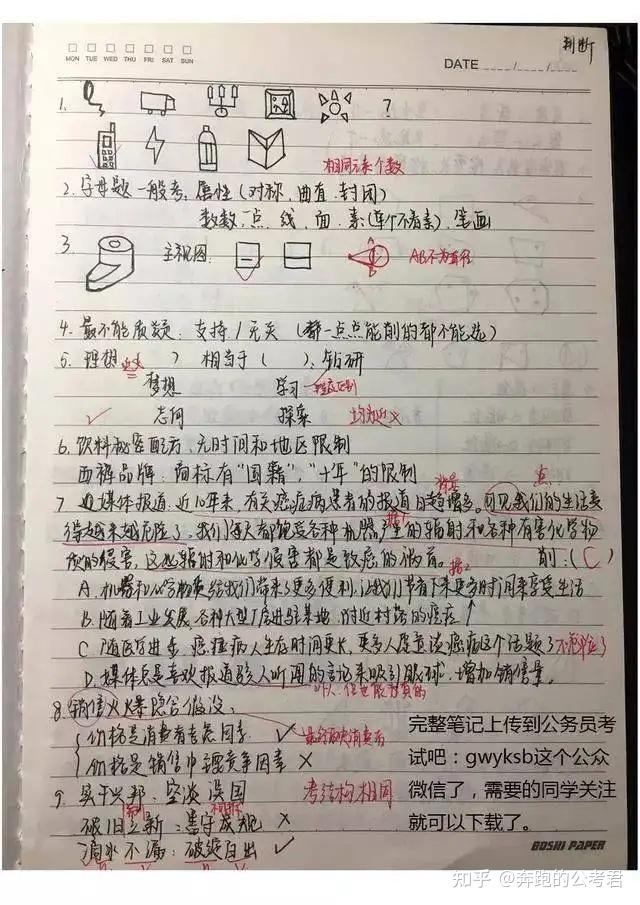 判断
MON TUE WED THU FRI SAT SUN
DATE
1.
?
相同元素个数
2. 字母题一般考: 属性(对称、曲直、封闭)
数数, 点、线、面、素(连个不看素), 笔画
3.
主视图:
AB不为直径
4. 最不能质疑类: 支持/无关 (都一点点能削的都不能选)
5. 理想 ( ) 相当于 ( ): 钻研
近义
梦想 学习 程度区别
✓ 志向 探索 均为近义 ×
6. 饮料秘密配方, 无时间和地区限制
品牌: 商标有"国籍", "十年"的限制
背景 点
7. 近媒体报道, 近10年来, 有关癌症病患者的报道日趋增多。可见我们的生活变
得越来越危险了, 我们每天都饱受各种机器产生的辐射和各种有害化学物
质的侵害, 这些辐射和化学侵害都是致癌的祸首。 削: (C)
A. 机器和化学物质给我们带来了更多便利, 让我们节省下来更多时间来享受生活
B. 随着工业发展, 各种大型厂房进驻某地, 附近村落的癌症↑
C. 随医学进步, 癌症病人生存时间更长, 更多人愿意谈癌症这个话题了 不危险了
D. 媒体总是喜欢报道骇人听闻的言论来吸引眼球, 增加销售量。
个人, 但也能为真的
8. 销售火爆隐含假设:
价格是消费者考虑因素 ✓
价格是销售中主要竞争因素 ×
9. 实干兴邦: 空谈误国 考结构相同
破旧立新: 墨守成规 ×
滴水不漏: 破绽百出 ✓
完整笔记上传到公务员考
试吧：gwyksb这个公众
微信了，需要的同学关注
就可以下载了。
BOSHI PAPER
知乎 @奔跑的公考君